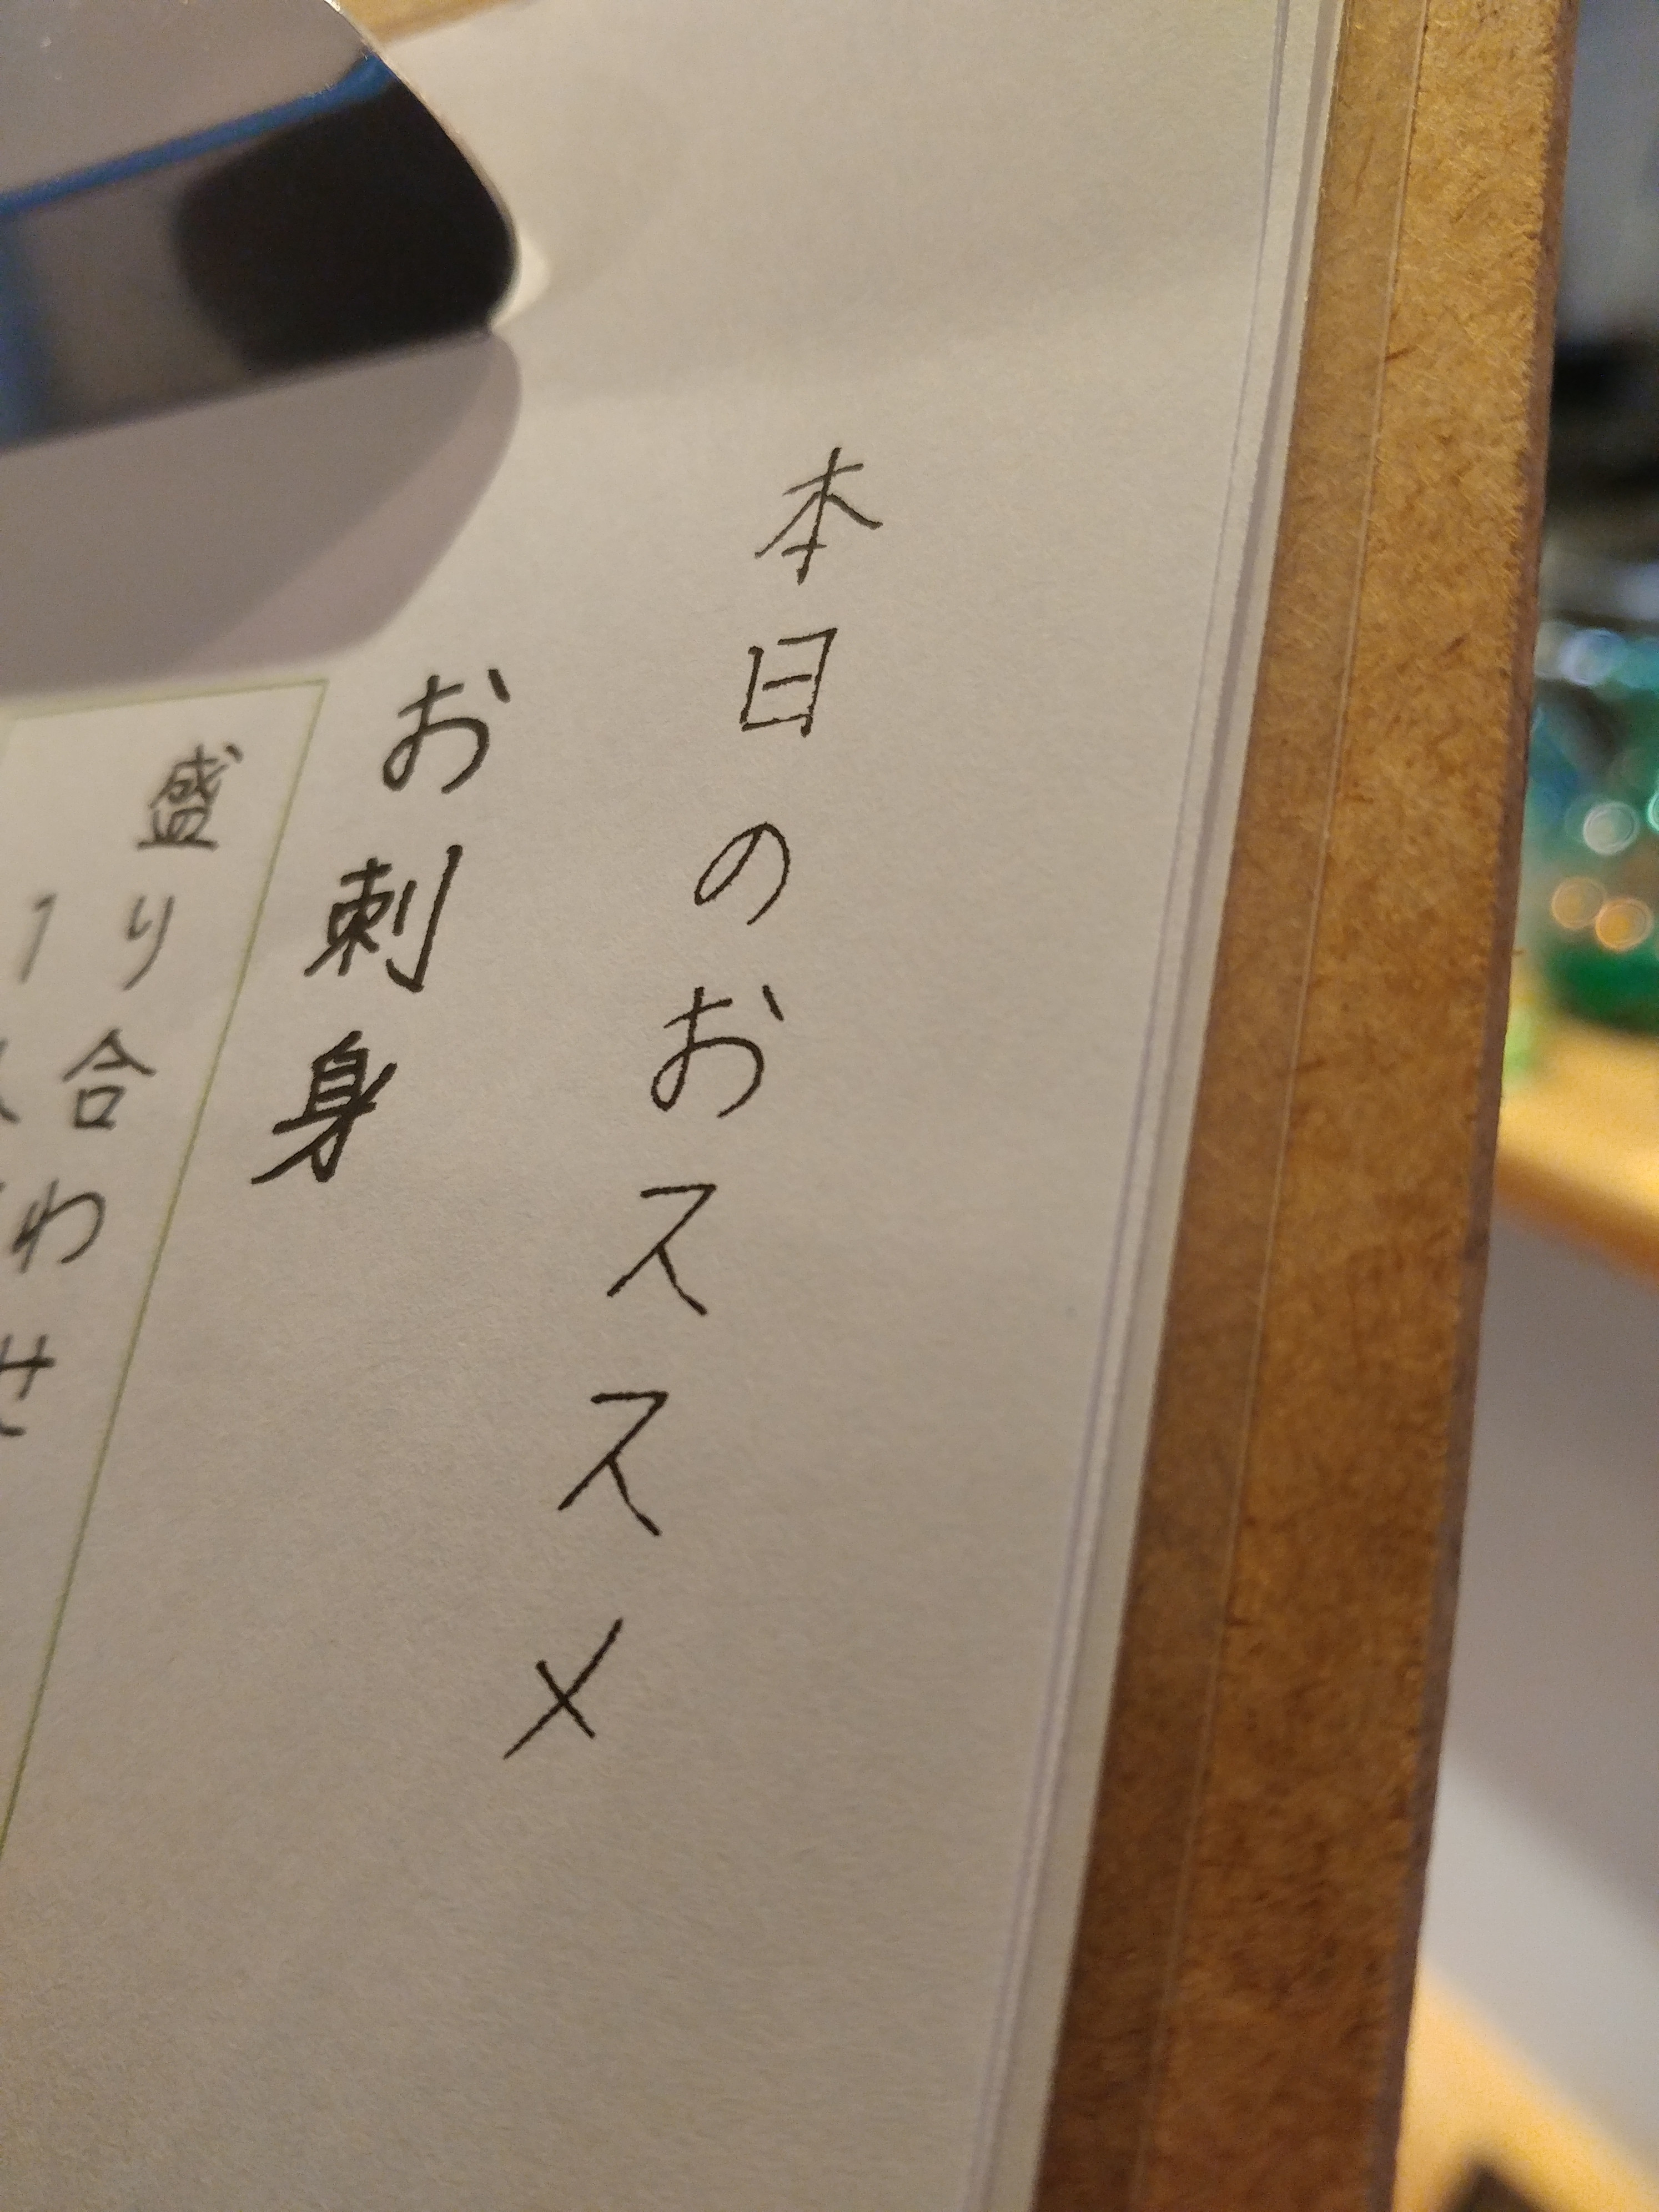 本日のおススメ
お刺身
盛り合わせ
1